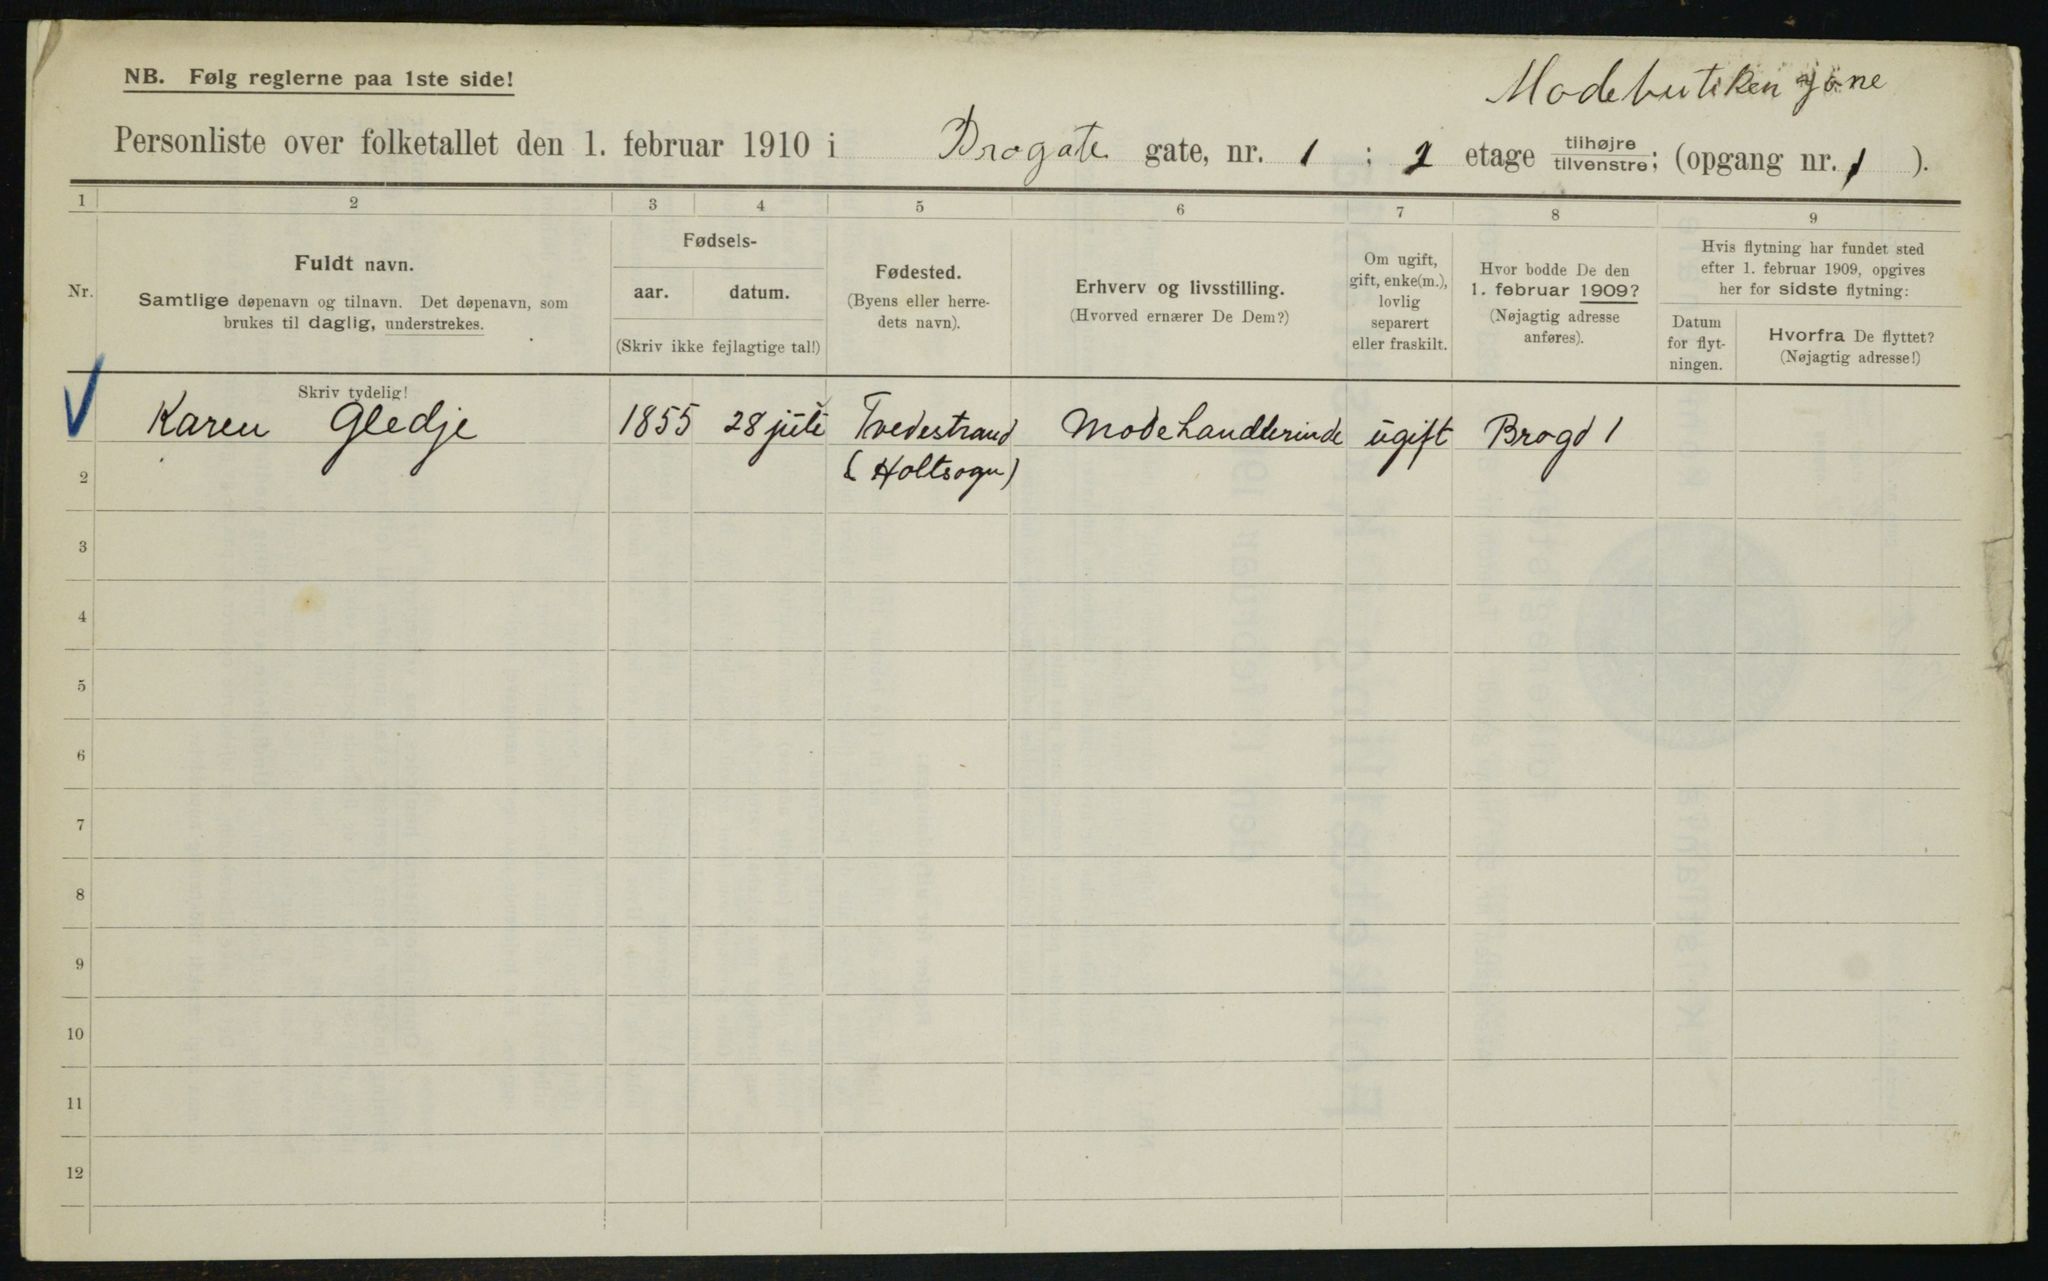 NB. Følg reglerne paa 1ste side!
Modebutiken
Personliste over folketallet den 1. februar 1910 i Brogate gate, nr. 1 : 1 etage tilhøjre tilvenstre; (opgang nr. 1 ).
1 2 3 4 5 6 7 8 9
Nr.
Fuldt navn.
Samtlige døpenavn og tilnavn. Det døpenavn, som
brukes til daglig, understrekes.
Fødsels-
aar. datum.
(Skriv ikke fejlagtige tal!)
Fødested.
(Byens eller herre-
dets navn).
Erhverv og livsstilling.
(Hvorved ernærer De Dem?)
Om ugift,
gift, enke(m.),
lovlig
separert
eller fraskilt.
Hvor bodde De den
1. februar 1909?
(Nøjagtig adresse
anføres).
Hvis flytning har fundet sted
efter 1. februar 1909, opgives
her for sidste flytning:
Datum
for flyt-
ningen.
Hvorfra De flyttet?
(Nøjagtig adresse!)
Skriv tydelig!
Karen Gledje 1855 28 juli Tvedestrand Modehandlerinde ugift Brogd 1
2 (Holtsogn)
3
4
5
6
7
8
9
10
11
12